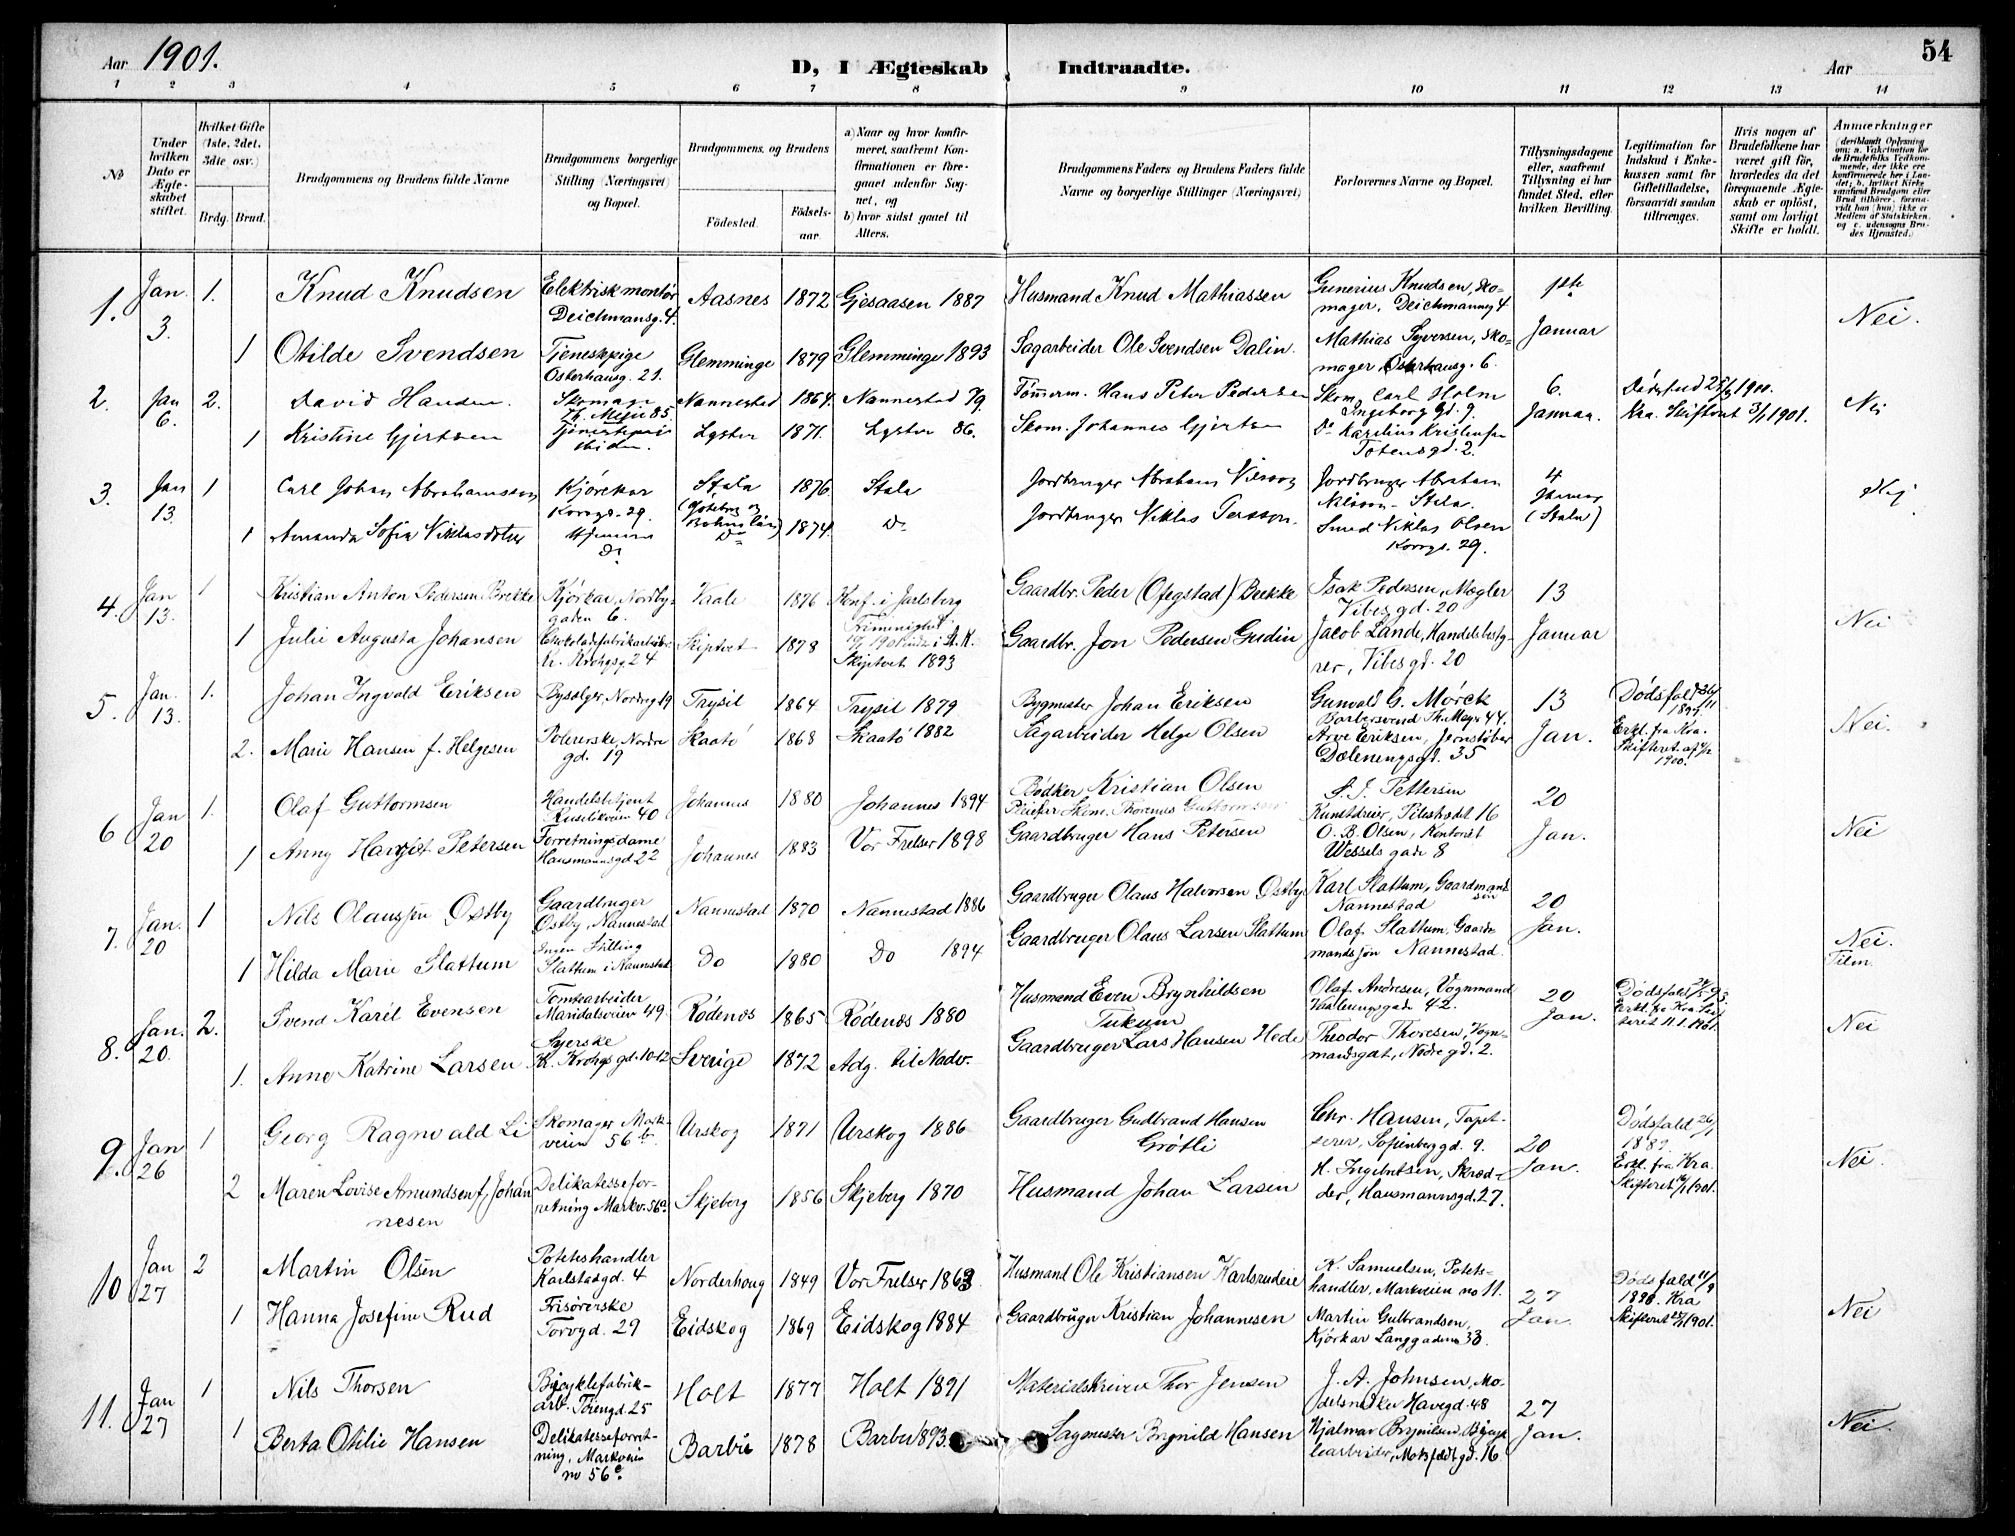 Aar 1901.
D, I Ægteskab Indtraadte.
Aar
54
1 2 3 4 5 6 7 8 9 10 11 12 13 14
No
Under hvilken Dato er Ægteskabet stiftet.
Hvilket Gifte (1ste, 2det, 3dte osv.)
Brdg. Brud.
Brudgommens og Brudens fulde Navne
Brudgommens borgerlige Stilling (Næringsvei) og Bopæl.
Brudgommens og Brudens
Födested. Födsels-aar.
a) Naar og hvor konfirmeret, saafremt Konfirmationen er foregaaet udenfor Sognet, og
b) hvor sidst gaaet til Alters.
Brudgommens Faders og Brudens Faders fulde Navne og borgerlige Stillinger (Næringsvei)
Forlovernes Navne og Bopæl.
Tillysningsdagene eller, saafremt Tillysning ei har fundet Sted, efter hvilken Bevilling.
Legitimation for Indskud i Enkekassen samt for Giftetilladelse, forsaavidt saadan tiltrænges.
Hvis nogen af Brudefolkene har været gift för, hvorledes da det foregaaende Ægteskab er oplöst, samt om lovligt Skifte er holdt.
Anmærkninger
1. Jan 3. 1. Knud Knudsen Elektriskmontör Deichmansg. 4. Aasnes 1872 Gjesaasen 1887 Husmand Knud Mathiassen Gunerius Knudsen, Skomager, Deichmansg 4 1ste Januar Nei.
1 Otilde Svendsen Tjenestepige Osterhausg. 21. Glemminge 1879 Glemminge 1893 Sagarbeider Ole Svendsen Dalin. Mathias Syversen, Skomager Osterhausg. 6.
2. Jan 6. 2. David Hansen. Skomager Th. Meyer 85 Nannestad 1864. Nannestad 79. Tömmerm. Hans Peter Pedersen Skom. Carl Holm Ingeborg Gd. 9. 6. Januar. Kra. Skifteret 3/1 1901. Nei
1 Kristine Gjertsen ibidem. Lyster 1871. Lyster 86. Skom. Johannes Gjertsen Do Karelius Kristensen Totensgd. 2.
3. Jan 13. 1 Carl Johan Abrahamsson Kjörekar Korsgd. 29. Stala (Göteborg og Bohus län) 1876 Stala Jordbruger Abraham Nilsson Jordbruger Abraham Nilsson - Stala. 4 Januar (Stala) Nej
1 Amanda Sofia Niklasdotter Hjemme Do Do 1874. Do Jordbruger Niklas Persson. Smed Niklas Olsen Korsgd. 29.
4. Jan 13. 1 Kristian Anton Pedersen Brekke Kjörkar, Nordbygaden 6. Vaale 1876 Konf. i Jarlsberg Gaardbr. Peder (Ofegstad) Brekke Isak Pedersen, Mægler Vibes gd. 20 13 Januar Nei
1 Julie Augusta Johansen Kr. Krohgsg. 24 Skiptvet 1878 Skiptvet 1893 Gaardbr. Jon Pedersen Gudin Jacob Lande, Handelsbestyrer, Vibesgd. 20
5. Jan. 13. 1. Johan Ingvald Eriksen Bysælger, Nordreg 19 Trysil 1864 Trysil 1879 Bygmester Johan Eriksen Gunvald G. Mörck Barbersvend Th. Meyer 44. 13 Jan. Dödsfald 26/11 1899. Erkl. fra Kra. Skifteret af 1900. Nei.
2. Marie Hansen f. Helgesen Polererske, Nordre gd. 19 Skaatö 1868 Skaatö 1882 Sagarbeider Helge Olsen Arve Eriksen, Jernstöber Dælenengsgd. 35
6 Jan 20 1. Olaf Guttormsen Handelsbetjent Ruselökveien 40 Johannes 1880 Johannes 1894 Bödker Kristian Olsen S. J. Pettersen Kunstdreier, Pilestrædet 16 20 Jan. Nei
Pleiefar Skom. Thorenus Guttormsen
1 Anny Hargot Petersen Forretningsdame Hausmannsgd 22 Johannes 1883 Vor Frelser 1898 Gaardbruger Hans Petersen O. B. Olsen, Kontorist Wessels gade 8
7. Jan. 20 1 Nils Olaussen Östby Gaardbruger Östby, Nannestad Nannestad 1870 Nannestad 1886 Gaardbruger Olaus Halvorsen Östby Karl Slattum, Gaardmandssön Nannestad 20 Jan. Nei. Tilm.
1 Hilda Marie Slattum Ingen Stilling Slattum i Nannestad Do 1880 Do 1894 Gaardbruger Olaus Larsen Slattum Olaf Slattum, Gaardmandssön Nannestad.
8. Jan. 20. 2. Svend Karil Evensen Tomtearbeider Maridalsveien 49 Rödenæs 1865 Rödenæs 1880 Husmand Even Brynhildsen Tukum Olaf Andresen, Vognmand Vaalerenggade 42. 20 Jan. Erkl. fra Kra. Skifteret 11.1.1901. Nei
1. Anne Katrine Larsen Syerske Kr. Krohgs gd. 10-12 Sverige 1872 Adg. til Nadv. Gaardbruger Lars Hansen Hede Theodor Thoresen, Vognmandsgat, Nedre gd. 2.
9. Jan 26 1 Georg Ragnvald Li Skomager Markveien 56b Urskog 1871 Urskog 1886 Gaardbruger Gudbrand Hansen Grötli Chr. Hansen, Tapetserer, Sofienberggd. 9. 20 Jan. Dödsfald 26/1 1889. Erkl. fra Kra. Skifteret 1901. Nei.
2 Maren Lovise Amundsen f. Johannesen Delikatesseforretning Markv. 56c. Skjeberg 1856 Skjeberg 1870 Husmand Johan Larsen H. Ingebretsen, Skrædder, Hausmannsgd. 27.
10 Jan 27 2 Martin Olsen Poteteshandler Karlstadgd. 4 Norderhoug 1849 Vor Frelser 1863 Husmand Ole Kristiansen Karlsrudeie K. Samuelsen, Potetshandler, Markveien no 11. 27 Jan. Dödsfald 11/9 1898. Kra Skifteret 1901. Nei
1 Hanna Josefine Rud Frisörerske Torvgd. 29 Eidskog 1869 Eidskog 1884 Gaardbruger Kristian Johannesen Martin Gulbrandsen, Kjörkar Langgaden 33.
11. Jan 27 1 Nils Thorsen Bicyklefabrik-arb. Töiengd. 25 Holt 1877 Holt 1891 Materialskriver Thor Jensen J. A. Johnsen, Modelsnekker Havegd. 48 27 Jan. Nei.
1 Berta Otilie Hansen Delikatesseforretning, Markveien no 56c. Barbu 1878 Barbu 1893. Sagmester Brynild Hansen Hjalmar Brynilsen, Bicyklearbeider, Motzfeldt gd. 16